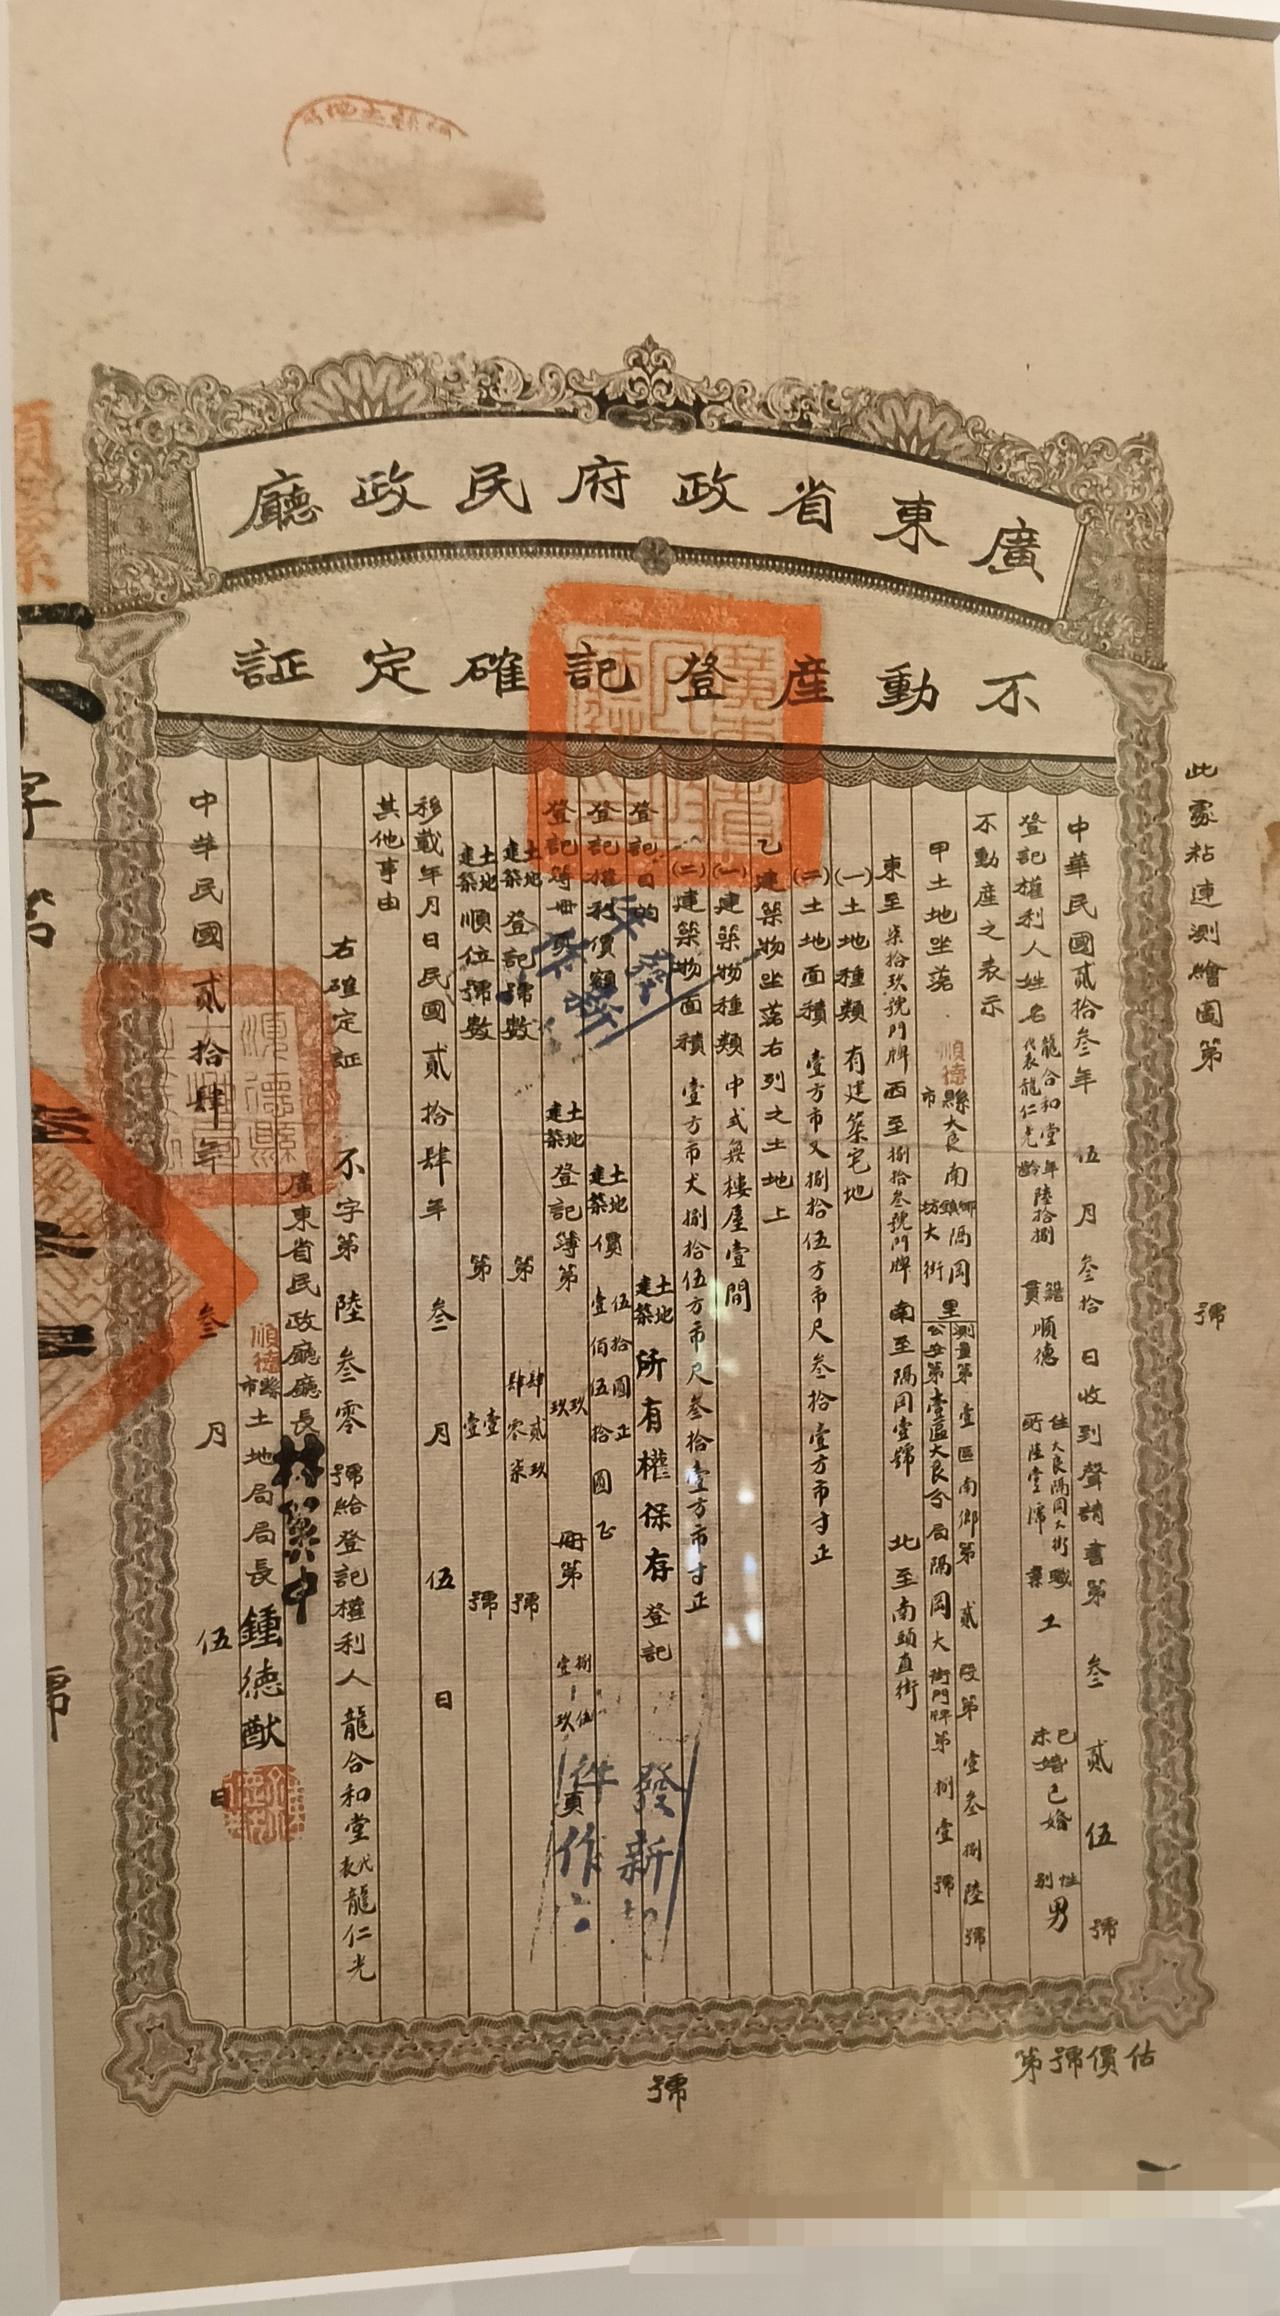 廣東省政府民政廳
不動產登記確定証
此處粘連測繪圖第 號
中華民國貳拾叁年 伍 月 叁拾 日收到聲請書第 叁貳伍 號
登記權利人姓名 龍合和堂代表龍仁光 年齡 陸拾捌 籍貫 順德 住所 大良隔岡大街陸壹 職業 工 已未婚 已婚 性別 男
不動產之表示
甲土地坐落 順德縣市大良南鄉鎮坊隔岡大街里 測量第壹區南鄉第貳段第壹叁捌陸號 公安第壹區大良分局隔岡大街門牌第捌壹號
東至柒拾玖號門牌 西至捌拾叁號門牌 南至隔岡壹號 北至南頭直街
(一)土地種類 有建築宅地
(二)土地面積 壹方市丈捌拾伍方市尺叁拾壹方市寸正
乙建築物坐落右列之土地上
(一)建築物種類 中式無樓屋壹間
(二)建築物面積 壹方市丈捌拾伍方市尺叁拾壹方市寸正
登記目的 土地建築所有權保存登記
登記權利價額 土地建築價 伍拾圓正 壹佰伍拾圓正
登記簿冊頁 土地建築登記簿第 玖玖 冊第 捌伍 壹玖 頁
土地建築登記號數 第 肆貳玖 肆零柒 號
土地建築順位號數 第 壹壹 號
移載年月日民國貳拾肆年 叁 月 伍 日
其他事由
右確定証 不字第 陸叁零 號給登記權利人 龍合和堂代表龍仁光
廣東省民政廳廳長林翼中
順德縣市土地局局長鍾德猷
中華民國貳拾肆年 叁 月 伍 日
發新
件作
順德縣
字第 號
估價號第
號